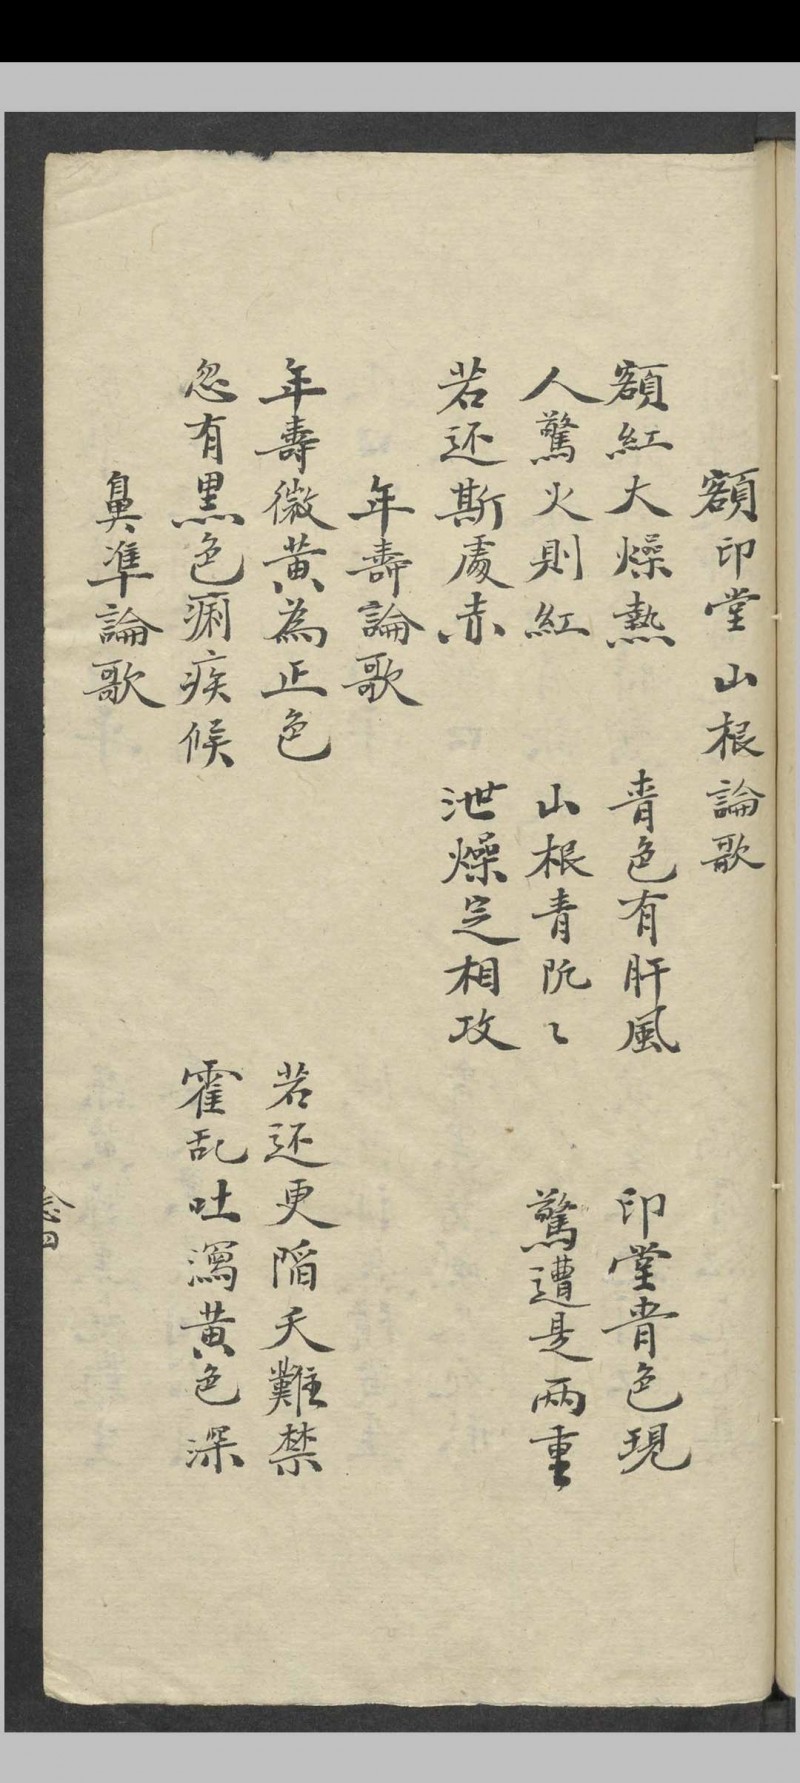 額印堂山根論歌
額紅大燥熱 青色有肝風 印堂青色現
人驚火則紅 山根青阮〻 驚遭是兩重
若还斯處赤 泄燥定相攻
年壽論歌
年壽微黃為正色 若还更陷夭難禁
忽有黑色痢疾候 霍乱吐瀉黃色深
鼻準論歌